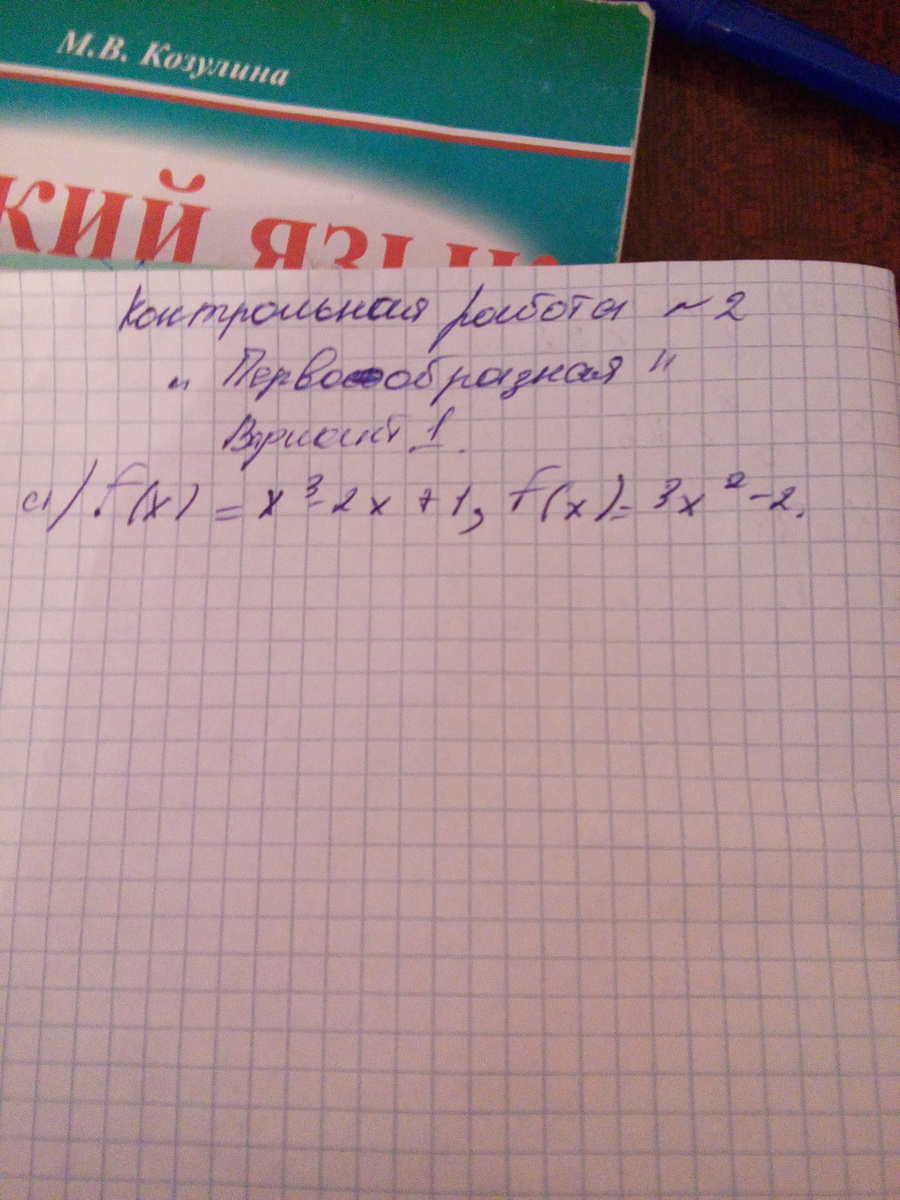 М.В. Козулина
КИЙ ЯЗЫК
Контрольная работа ~ 2
„ Первообразная "
Вариант 1.
а) f(x) = x³-2x+1, f(x)= 3x²-2.